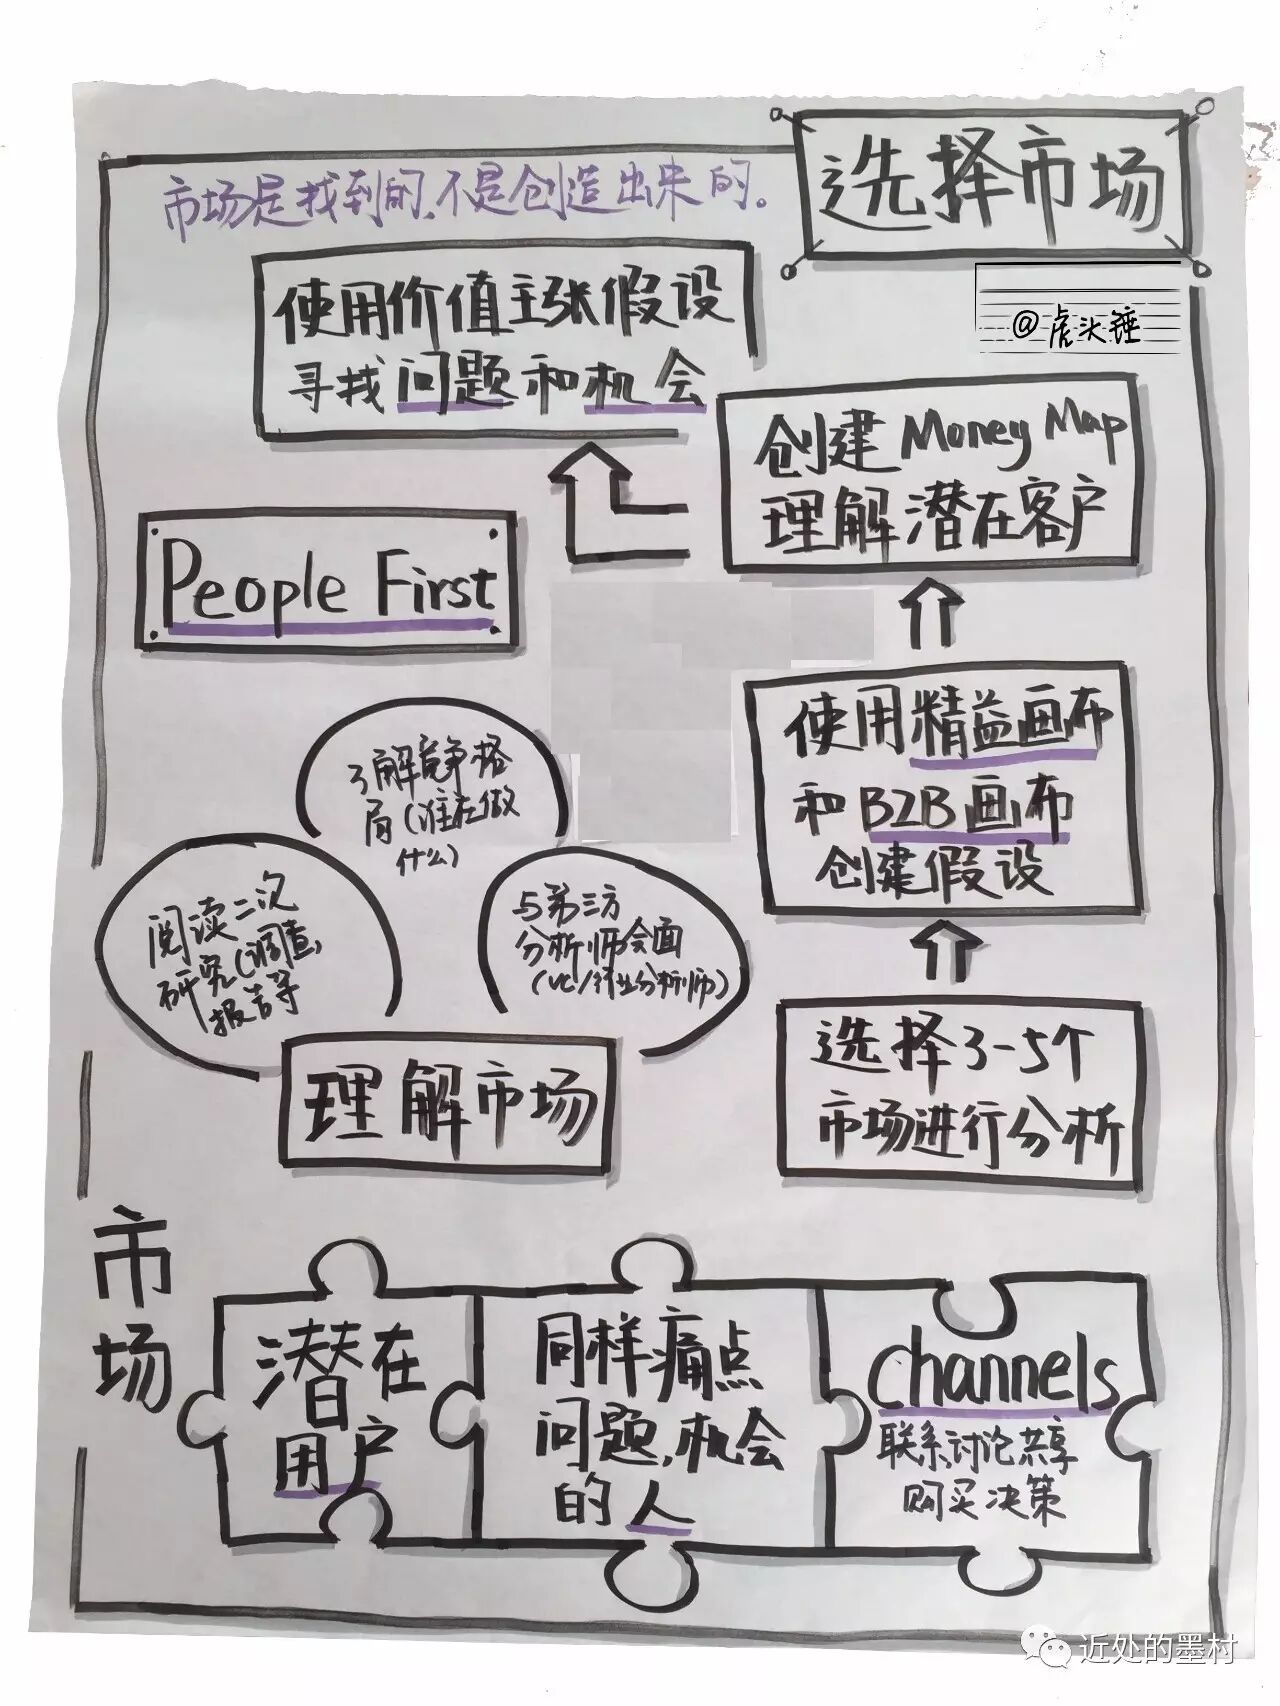 选择市场
市场是找到的,不是创造出来的。
@虎头锤
使用价值主张假设
寻找问题和机会
创建 Money Map
理解潜在客户
People First
使用精益画布
和B2B画布
创建假设
了解竞争格
局(谁在做
什么)
阅读二次
研究(调查,
报告等
与第三方
分析师会面
(VC/行业分析师)
理解市场
选择3-5个
市场进行分析
市场
潜在
用户
同样痛点
问题,机会
的人
Channels
联系,讨论共享
购买决策
近处的墨村